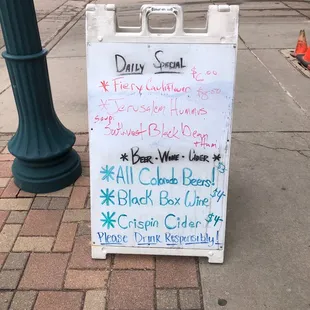 Daily Special
* Fiery Cauliflower
* Jerusalem Hummus
Soup
Southwest Black Bean
+ Ham
* Beer • Wine • Cider *
* All Colorado Beers!
* Black Box Wine $4
* Crispin Cider $4
Please Drink Responsibly!